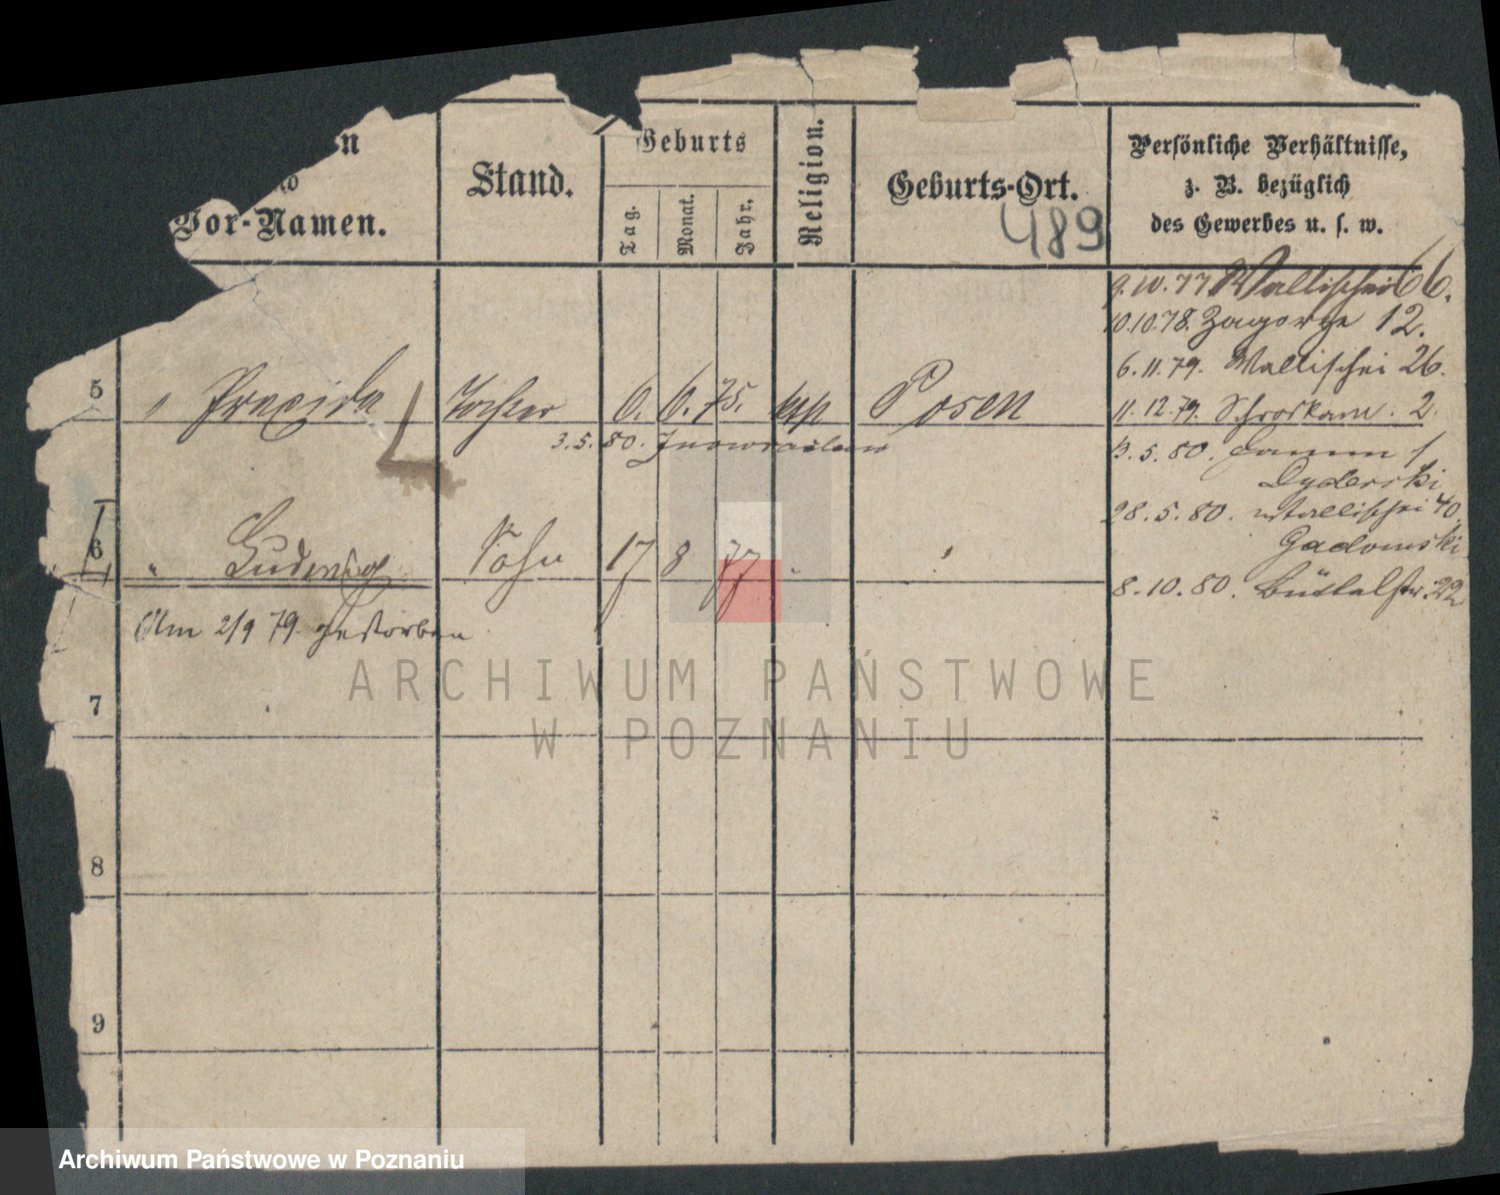 Vor-Namen.
Stand.
Geburts
Tag.
Monat.
Jahr.
Religion.
Geburts-Ort.
489
Persönliche Verhältnisse,
z. B. bezüglich
des Gewerbes u. s. w.
9.10.77 Wallischei 66.
10.10.78. Zagorze 12.
6.11.79. Wallischei 26.
5 " Praxida Tochter 6. 6. 75. Posen
11.12.79. Schrodkam. 2.
3.5.80. Inowrazlaw
3.5.80. Damm 1
Dyderski
28.5.80. Wallischei 40.
6 " Ludwig Sohn 17 8 77
Gadomski
8.10.80. Büttelstr. 22
Am 2/9 79. gestorben
7
8
9
ARCHIWUM PAŃSTWOWE
W POZNANIU
Archiwum Państwowe w Poznaniu